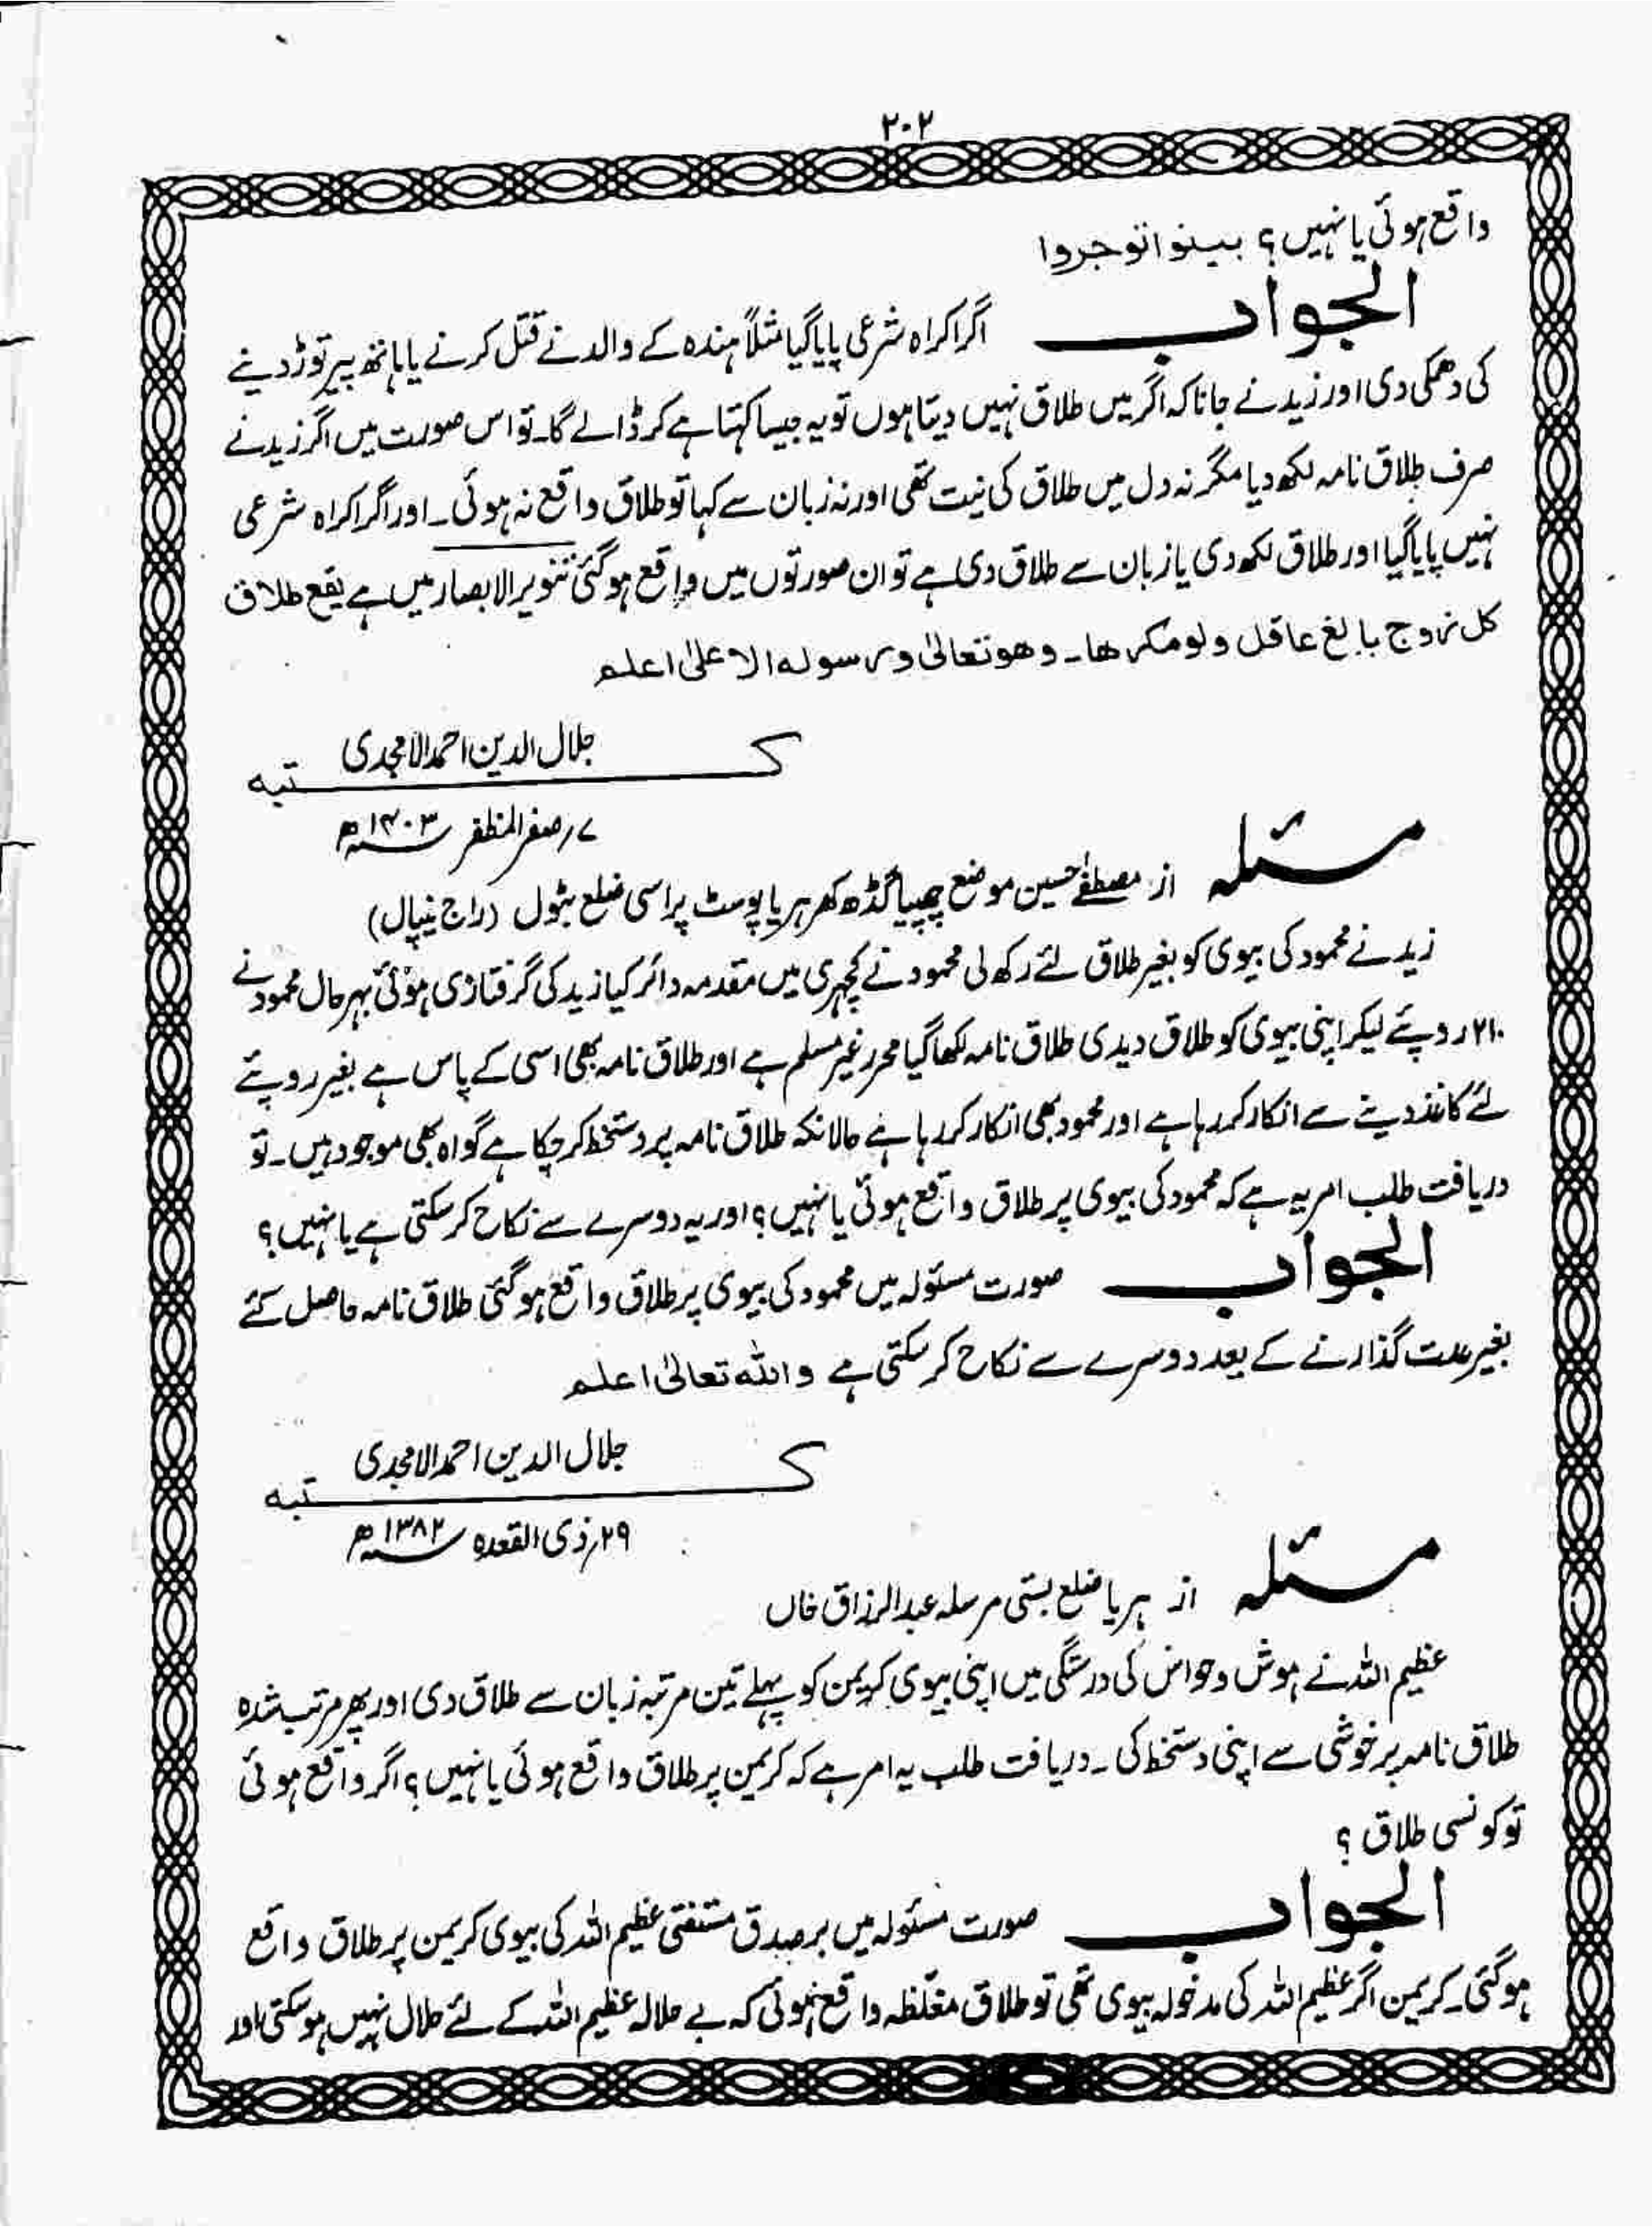 ۲۰۲
واقع ہوئی یا نہیں؟ بینوا توجروا
الجواب اگر اکراہ شرعی پایا گیا مثلاً ہندہ کے والد نے قتل کرنے یا ہاتھ پیر توڑ دینے
کی دھمکی دی اور زید نے جانا کہ اگر میں طلاق نہیں دیتا ہوں تو یہ جیسا کہتا ہے کر ڈالے گا۔ تو اس صورت میں اگر زید نے
صرف طلاق نامہ لکھ دیا مگر نہ دل میں طلاق کی نیت تھی اور نہ زبان سے کہا تو طلاق واقع نہ ہوئی۔ اور اگر اکراہ شرعی
نہیں پایا گیا اور طلاق لکھ دی یا زبان سے طلاق دی ہے تو ان صورتوں میں واقع ہو گئی تنویر الابصار میں ہے یقع طلاق
کل زوج بالغ عاقل ولو مکرھا۔ وھو تعالیٰ ورسولہ الاعلیٰ اعلم
جلال الدین احمد الامجدی
کتبہ
۷؍ صفر المظفر ۱۴۰۳ھ
مسئلہ از مصطفےٰ حسین موضع چھپیا گڈھ کھرہریا پوسٹ پراسی ضلع بٹول (راج نیپال)
زید نے محمود کی بیوی کو بغیر طلاق لئے رکھ لی محمود نے کچہری میں مقدمہ دائر کیا زید کی گرفتاری ہوئی بہر حال محمود نے
۲۱۰ روپئے لیکر اپنی بیوی کو طلاق دیدی طلاق نامہ لکھا گیا محرر غیر مسلم ہے اور طلاق نامہ بھی اسی کے پاس ہے بغیر روپئے
لئے کاغذ دینے سے انکار کر رہا ہے اور محمود بھی انکار کر رہا ہے حالانکہ طلاق نامہ پر دستخط کر چکا ہے گواہ بھی موجود ہیں۔ تو
دریافت طلب امر یہ ہے کہ محمود کی بیوی پر طلاق واقع ہوئی یا نہیں؟ اور یہ دوسرے سے نکاح کر سکتی ہے یا نہیں؟
الجواب صورت مسئولہ میں محمود کی بیوی پر طلاق واقع ہو گئی طلاق نامہ حاصل کئے
بغیر عدت گذارنے کے بعد دوسرے سے نکاح کر سکتی ہے واللہ تعالیٰ اعلم
جلال الدین احمد الامجدی
کتبہ
۲۹؍ ذی القعدہ ۱۳۸۲ھ
مسئلہ از ہریا ضلع بستی مرسلہ عبد الرزاق خاں
عظیم اللہ نے ہوش و حواس کی درستگی میں اپنی بیوی کریمن کو پہلے تین مرتبہ زبان سے طلاق دی اور پھر مرتب شدہ
طلاق نامہ پر خوشی سے اپنی دستخط کی۔ دریافت طلب یہ امر ہے کہ کریمن پر طلاق واقع ہوئی یا نہیں؟ اگر واقع ہوئی
تو کونسی طلاق؟
الجواب صورت مسئولہ میں بر صدق مستفتی عظیم اللہ کی بیوی کریمن پر طلاق واقع
ہو گئی۔ کریمن اگر عظیم اللہ کی مدخولہ بیوی تھی تو طلاق مغلظہ واقع ہوئی کہ بے حلالہ عظیم اللہ کے لئے حلال نہیں ہو سکتی اور